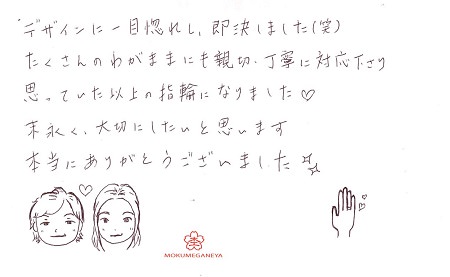 デザインに一目惚れし、即決しました(笑)
たくさんのわがままにも親切、丁寧に対応下さり
思っていた以上の指輪になりました♡
末永く、大切にしたいと思います
本当にありがとうございました☆☆
MOKUMEGANEYA